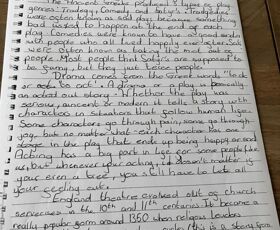 The Ancient Greeks produced 3 types of play
genres: Tragedy, Comedy and Satire. Tragedy
were often known as sad plays because something
bad used to happen at the end of each
play. Comedies were known to have a good ending
with people who all lived happily ever after. Satire
were often known as taking the mick out of
people. Most people find Satire's are supposed to
be funny, but they just tease people.
Drama comes from the Greek words "to do
or to act". A drama or a play is basically
an acted out story. Whether the play was
serious, ancient or modern it tells a story with
characters in situations that follow human life.
Some characters go through pain, some go through
joy, but no matter what each character has one
stage in the play that ends up being happy or sad
Acting is a big part in life for some people like
us, but whenever your acting, it doesn't matter if
your even a tree, you still have to let all
your feeling out.
England theatre evolved out of church
services in the 10th and 11th centuries. It became a
really popular form around 1350 when religous leaders
(this is a story